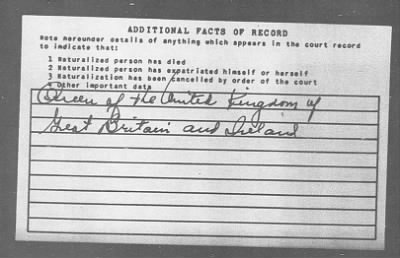 ADDITIONAL FACTS OF RECORD
Note hereunder details of anything which appears in the court record
to indicate that:
1 Naturalized person has died
2 Naturalized person has expatriated himself or herself
3 Naturalization has been cancelled by order of the court
4 Other important data
Queen of the United Kingdom of
Great Britain and Ireland